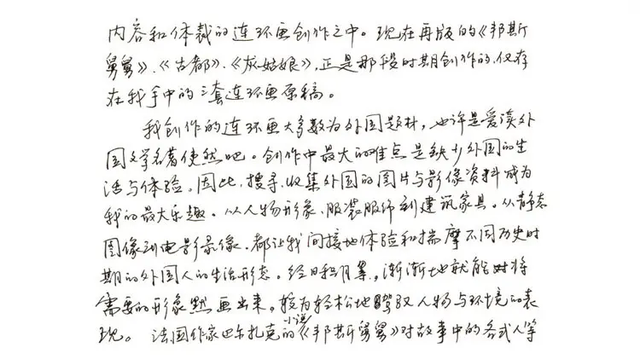 内容和体裁的连环画创作之中。现在再版的《邦斯
舅舅》、《古都》、《灰姑娘》,正是那段时期创作的,仅存
在我手中的三套连环画原稿。
我创作的连环画大多数为外国题材,也许是爱读外
国文学名著使然吧。创作中最大的难点是缺少外国的生
活与体验。因此,搜寻、收集外国的图片与影像资料成为
我的最大乐趣。从人物形象、服装服饰到建筑家具。从静态
图像到电影录像,都让我间接地体验和揣摩不同历史时
期的外国人的生活形态。经日积月累,渐渐地就能对将
需要的形象默画出来,较为轻松地驾驭人物与环境的表
现。法国作家巴尔扎克的小说《邦斯舅舅》对故事中的各式人等